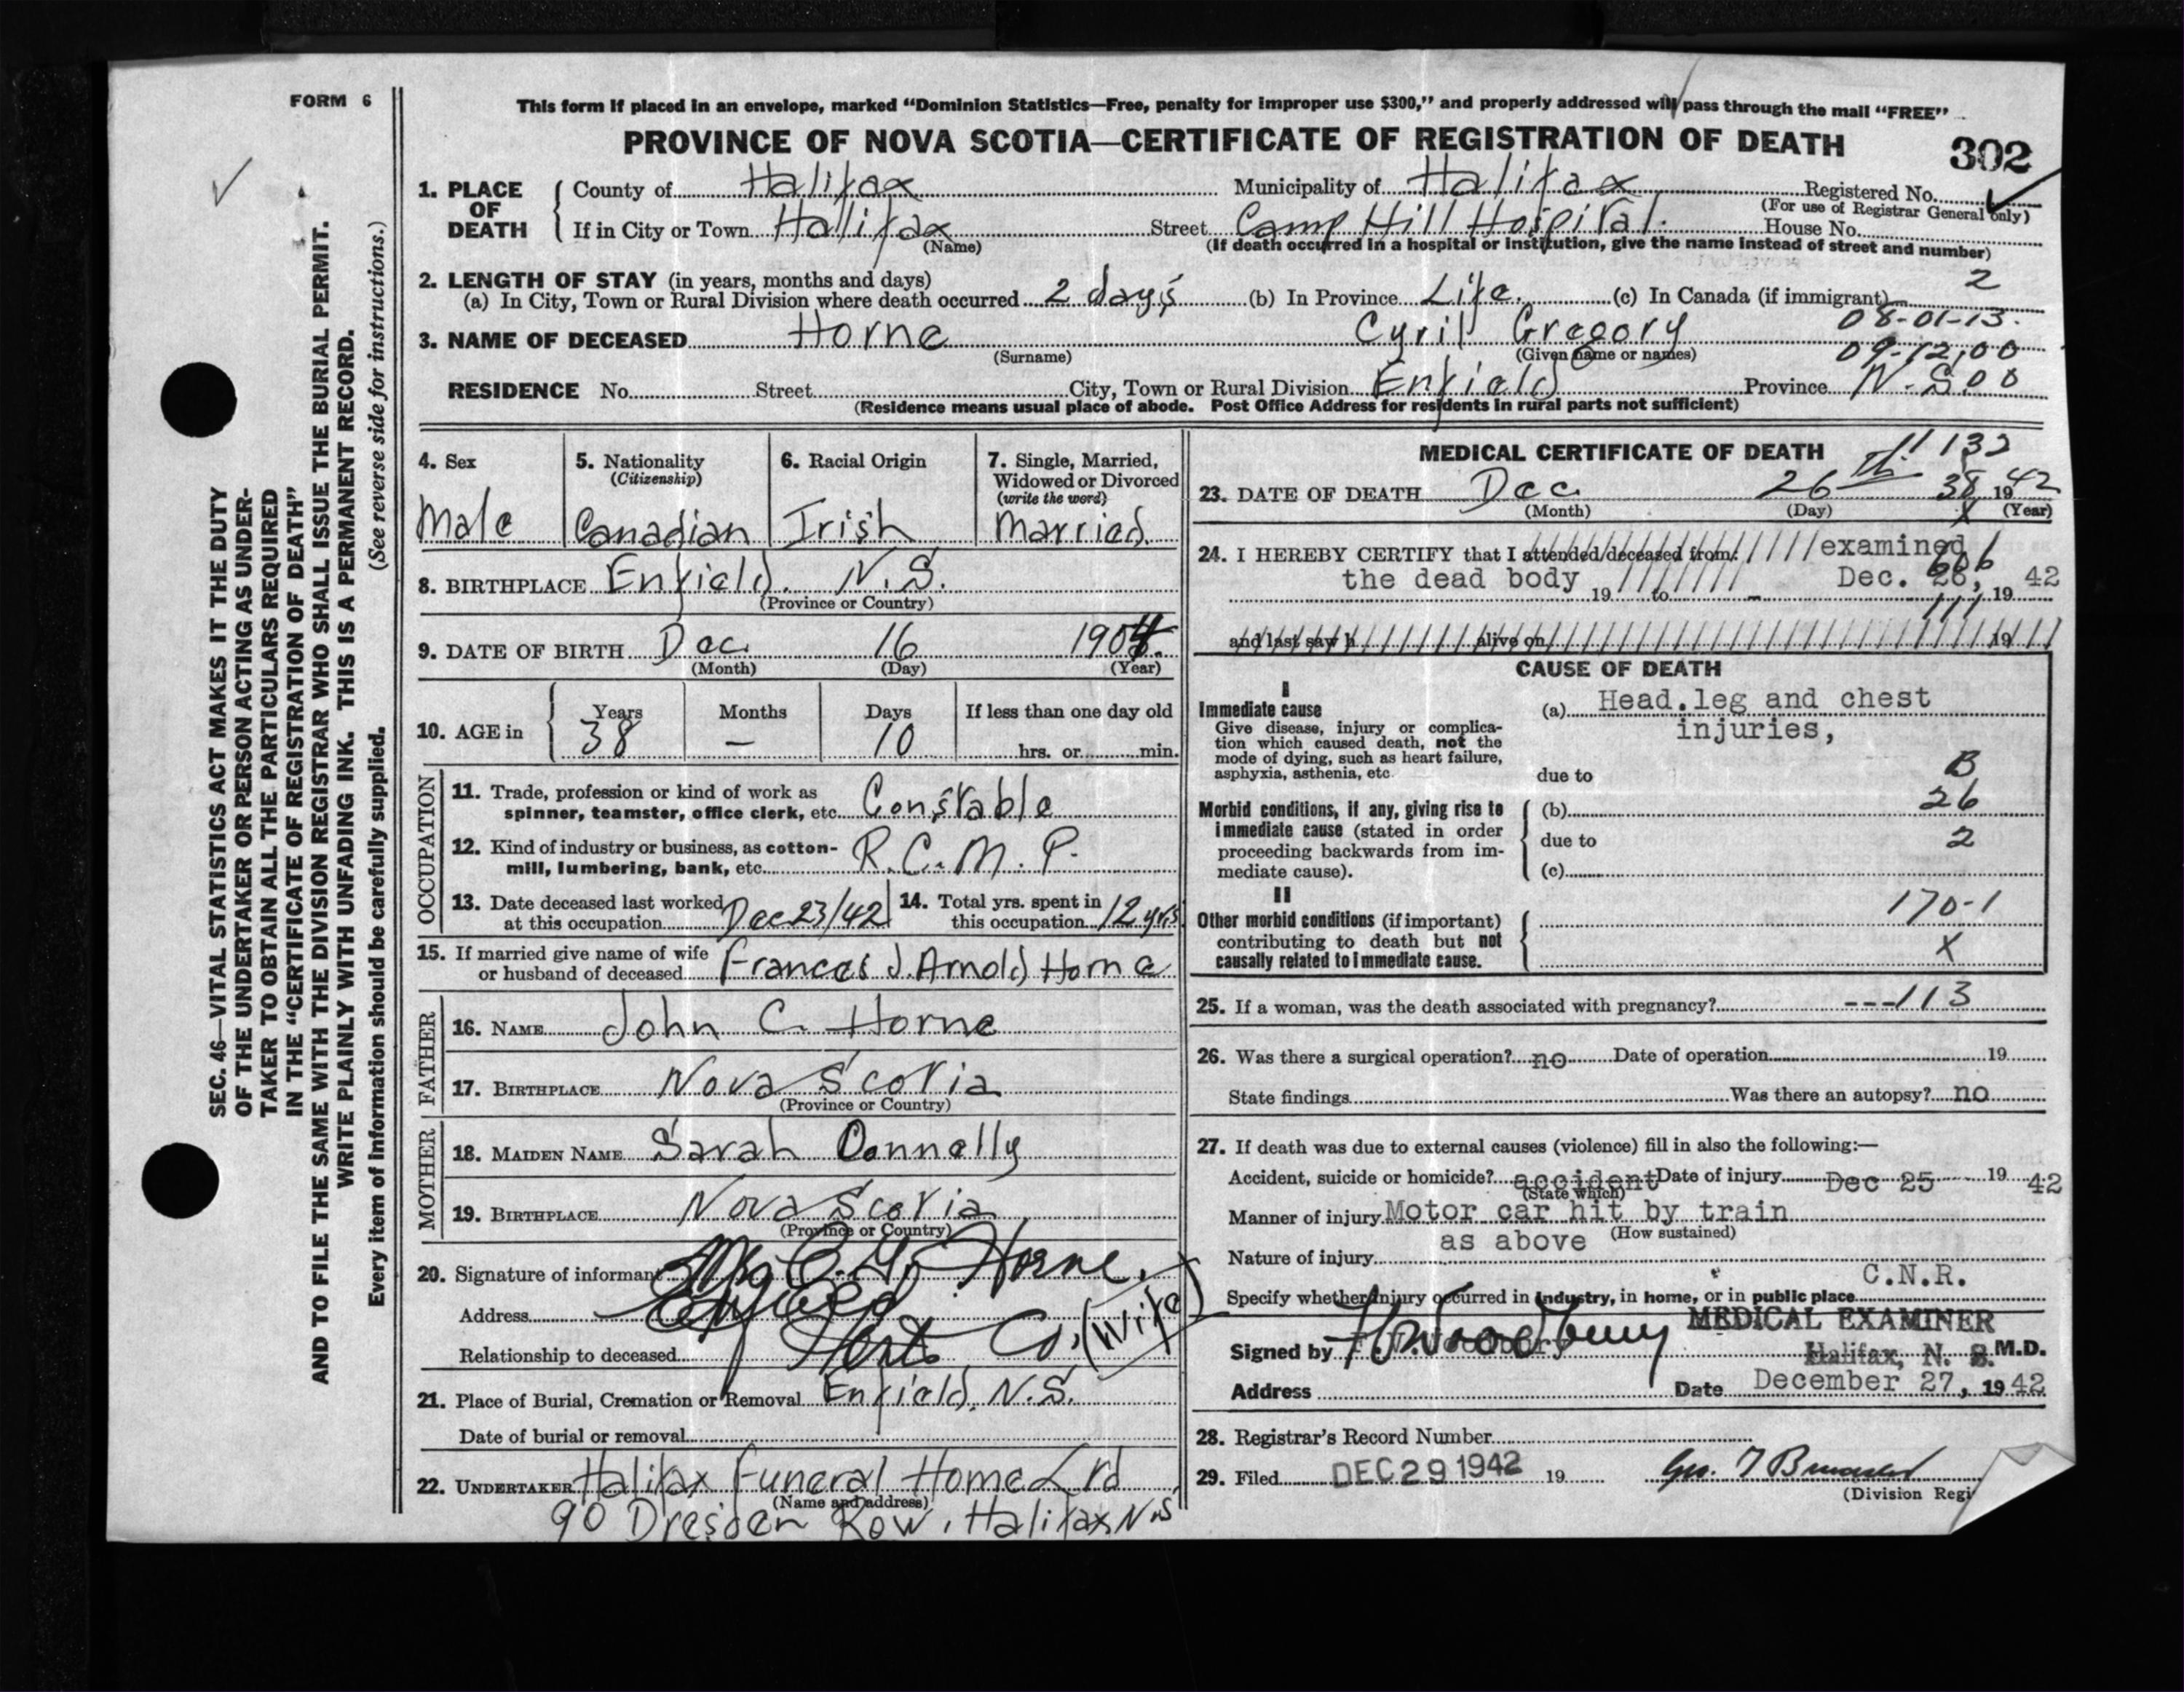 FORM 6
This form if placed in an envelope, marked "Dominion Statistics—Free, penalty for improper use $300," and properly addressed will pass through the mail "FREE"
PROVINCE OF NOVA SCOTIA—CERTIFICATE OF REGISTRATION OF DEATH
302
1. PLACE OF DEATH
County of Halifax Municipality of Halifax Registered No.
(For use of Registrar General only)
If in City or Town Hallifax Street Camp Hill Hospital. House No.
(Name) (If death occurred in a hospital or institution, give the name instead of street and number)
2. LENGTH OF STAY (in years, months and days) 2
(a) In City, Town or Rural Division where death occurred 2 days (b) In Province Life. (c) In Canada (if immigrant)
08-01-13.
3. NAME OF DECEASED Horne Cyril Gregory 09-12,00
(Surname) (Given name or names)
RESIDENCE No. Street City, Town or Rural Division Enfield Province N.S. 00
(Residence means usual place of abode. Post Office Address for residents in rural parts not sufficient)
4. Sex
Male
5. Nationality
(Citizenship)
Canadian
6. Racial Origin
Irish
7. Single, Married,
Widowed or Divorced
(write the word)
Married.
8. BIRTHPLACE Enfield. N.S.
(Province or Country)
9. DATE OF BIRTH Dec. 16 1904.
(Month) (Day) (Year)
10. AGE in
Years Months Days If less than one day old
38 — 10 hrs. or min.
OCCUPATION
11. Trade, profession or kind of work as
spinner, teamster, office clerk, etc. Constable
12. Kind of industry or business, as cotton-
mill, lumbering, bank, etc. R.C.M.P.
13. Date deceased last worked
at this occupation Dec 23/42
14. Total yrs. spent in
this occupation 12 yrs
15. If married give name of wife
or husband of deceased Frances J. Arnold Horne
FATHER
16. NAME John C. Horne
17. BIRTHPLACE Nova Scotia
(Province or Country)
MOTHER
18. MAIDEN NAME Sarah Donnelly
19. BIRTHPLACE Nova Scotia
(Province or Country)
20. Signature of informant Mrs C. G. Horne.
Address Enfield
Relationship to deceased Hants Co. (Wife)
21. Place of Burial, Cremation or Removal Enfield, N.S.
Date of burial or removal
22. UNDERTAKER Halifax Funeral Home Ltd
(Name and address)
90 Dresden Row, Halifax N.S
MEDICAL CERTIFICATE OF DEATH
11 132
23. DATE OF DEATH Dec 26th 38 19 42
(Month) (Day) X (Year)
24. I HEREBY CERTIFY that I attended deceased from: examined
the dead body 19 to Dec. 26, 19 42
606
111
and last saw h alive on 19
CAUSE OF DEATH
I
Immediate cause
Give disease, injury or complica-
tion which caused death, not the
mode of dying, such as heart failure,
asphyxia, asthenia, etc.
(a) Head.leg and chest
injuries,
due to B
Morbid conditions, if any, giving rise to
immediate cause (stated in order
proceeding backwards from im-
mediate cause).
(b) 26
due to 2
(c)
II
Other morbid conditions (if important)
contributing to death but not
causally related to immediate cause.
170-1
X
25. If a woman, was the death associated with pregnancy? ---113
26. Was there a surgical operation? no Date of operation 19
State findings Was there an autopsy? no
27. If death was due to external causes (violence) fill in also the following:—
Accident, suicide or homicide? accident Date of injury Dec 25 19 42
(State which)
Manner of injury Motor car hit by train
(How sustained)
Nature of injury as above
C.N.R.
Specify whether injury occurred in industry, in home, or in public place
MEDICAL EXAMINER
Signed by Woodbury Halifax, N. S. M.D.
Address Date December 27, 1942
28. Registrar's Record Number
29. Filed DEC 29 1942 19 Geo. T
(Division Regi
SEC. 46—VITAL STATISTICS ACT MAKES IT THE DUTY
OF THE UNDERTAKER OR PERSON ACTING AS UNDER-
TAKER TO OBTAIN ALL THE PARTICULARS REQUIRED
IN THE "CERTIFICATE OF REGISTRATION OF DEATH"
AND TO FILE THE SAME WITH THE DIVISION REGISTRAR WHO SHALL ISSUE THE BURIAL PERMIT.
WRITE PLAINLY WITH UNFADING INK. THIS IS A PERMANENT RECORD.
Every item of information should be carefully supplied. (See reverse side for instructions.)